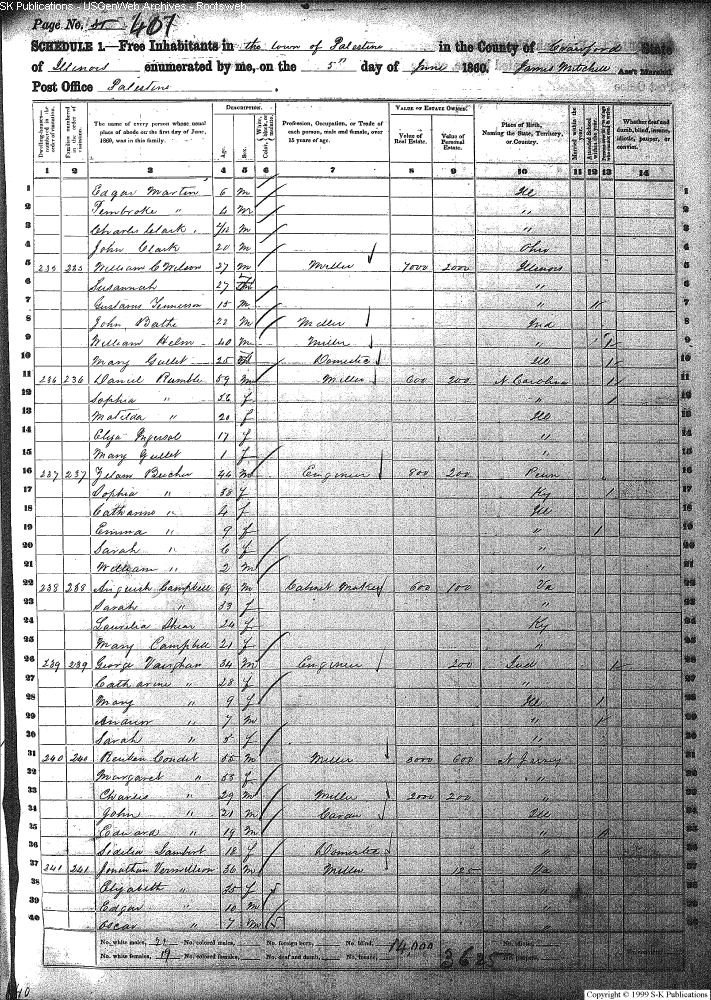 SK Publications - USGenWeb Archives - Rootsweb
Page No. 407
SCHEDULE 1.—Free Inhabitants in the town of Palestine in the County of Crawford State
of Illinois enumerated by me, on the 5th day of June 1860. James Mitchell Ass't Marshal
Post Office Palestine.
Dwelling-houses—numbered in the order of visitation. Families numbered in the order of visitation. The name of every person whose usual place of abode on the first day of June, 1860, was in this family. DESCRIPTION. Age. Sex. Color, White, black, or mulatto. Profession, Occupation, or Trade of each person, male and female, over 15 years of age. VALUE OF ESTATE OWNED. Value of Real Estate. Value of Personal Estate. Place of Birth, Naming the State, Territory, or Country. Married within the year. Attended School within the year. Whether deaf and dumb, blind, insane, idiotic, pauper, or convict.
1 2 3 4 5 6 7 8 9 10 11 12 13 14
1 Edgar Martin 6 m Ill 1
2 Pembroke " 4 m " 2
3 Charles Clark m " 3
4 John Clark 20 m Ohio 4
5 235 235 William C Wilson 27 m Miller 7000 2000 Illinois 5
6 Susannah 27 " 6
7 Gustavus 15 m " 7
8 John Bathe 22 m Miller Ind 8
9 William Helm 40 m Miller " 9
10 Mary Gullet 25 Domestic Ill 10
11 236 236 Daniel Rumble 59 m Miller 600 200 N Carolina 11
12 Sophia " 56 f " 12
13 Matilda " 20 f Ill 13
14 Eliza Ingersol 17 f " 14
15 Mary Gullet 1 f " 15
16 237 237 Beecher 44 m Engineer 800 200 Penn 16
17 Sophia " 38 f Ky 17
18 Catharine " 4 f Ill 18
19 Emma " 9 f " 19
20 Sarah " 6 f " 20
21 William " 2 m " 21
22 238 238 Campbell 69 m Cabinet Maker 600 100 Va 22
23 Sarah " 53 f " 23
24 Shear 24 f Ky 24
25 Mary Campbell 21 f " 25
26 239 239 George Vaughan 34 m Engineer 200 Ind 26
27 Catharine " 28 f " 27
28 Mary " 9 f Ill 28
29 Andrew " 7 m " 29
30 Sarah " 5 f " 30
31 240 240 Reuben Condit 55 m Miller 3000 600 N Jersey 31
32 Margaret " 53 f " 32
33 Charles " 29 m Miller 2000 200 " 33
34 John " 21 m Ill 34
35 Edward " 19 m " 35
36 Lambert 18 f Domestic " 36
37 241 241 Jonathan Vermillion 36 m Miller 125 Va 37
38 Elizabeth " 25 f " 38
39 Edgar " 10 m " 39
40 Oscar " 7 m " 40
No. white males, 21 No. colored males, No. foreign born, No. blind, 14,000 3625 No. idiotic,
No. white females, 19 No. colored females, No. deaf and dumb, No. insane,
Copyright © 1999 S-K Publications